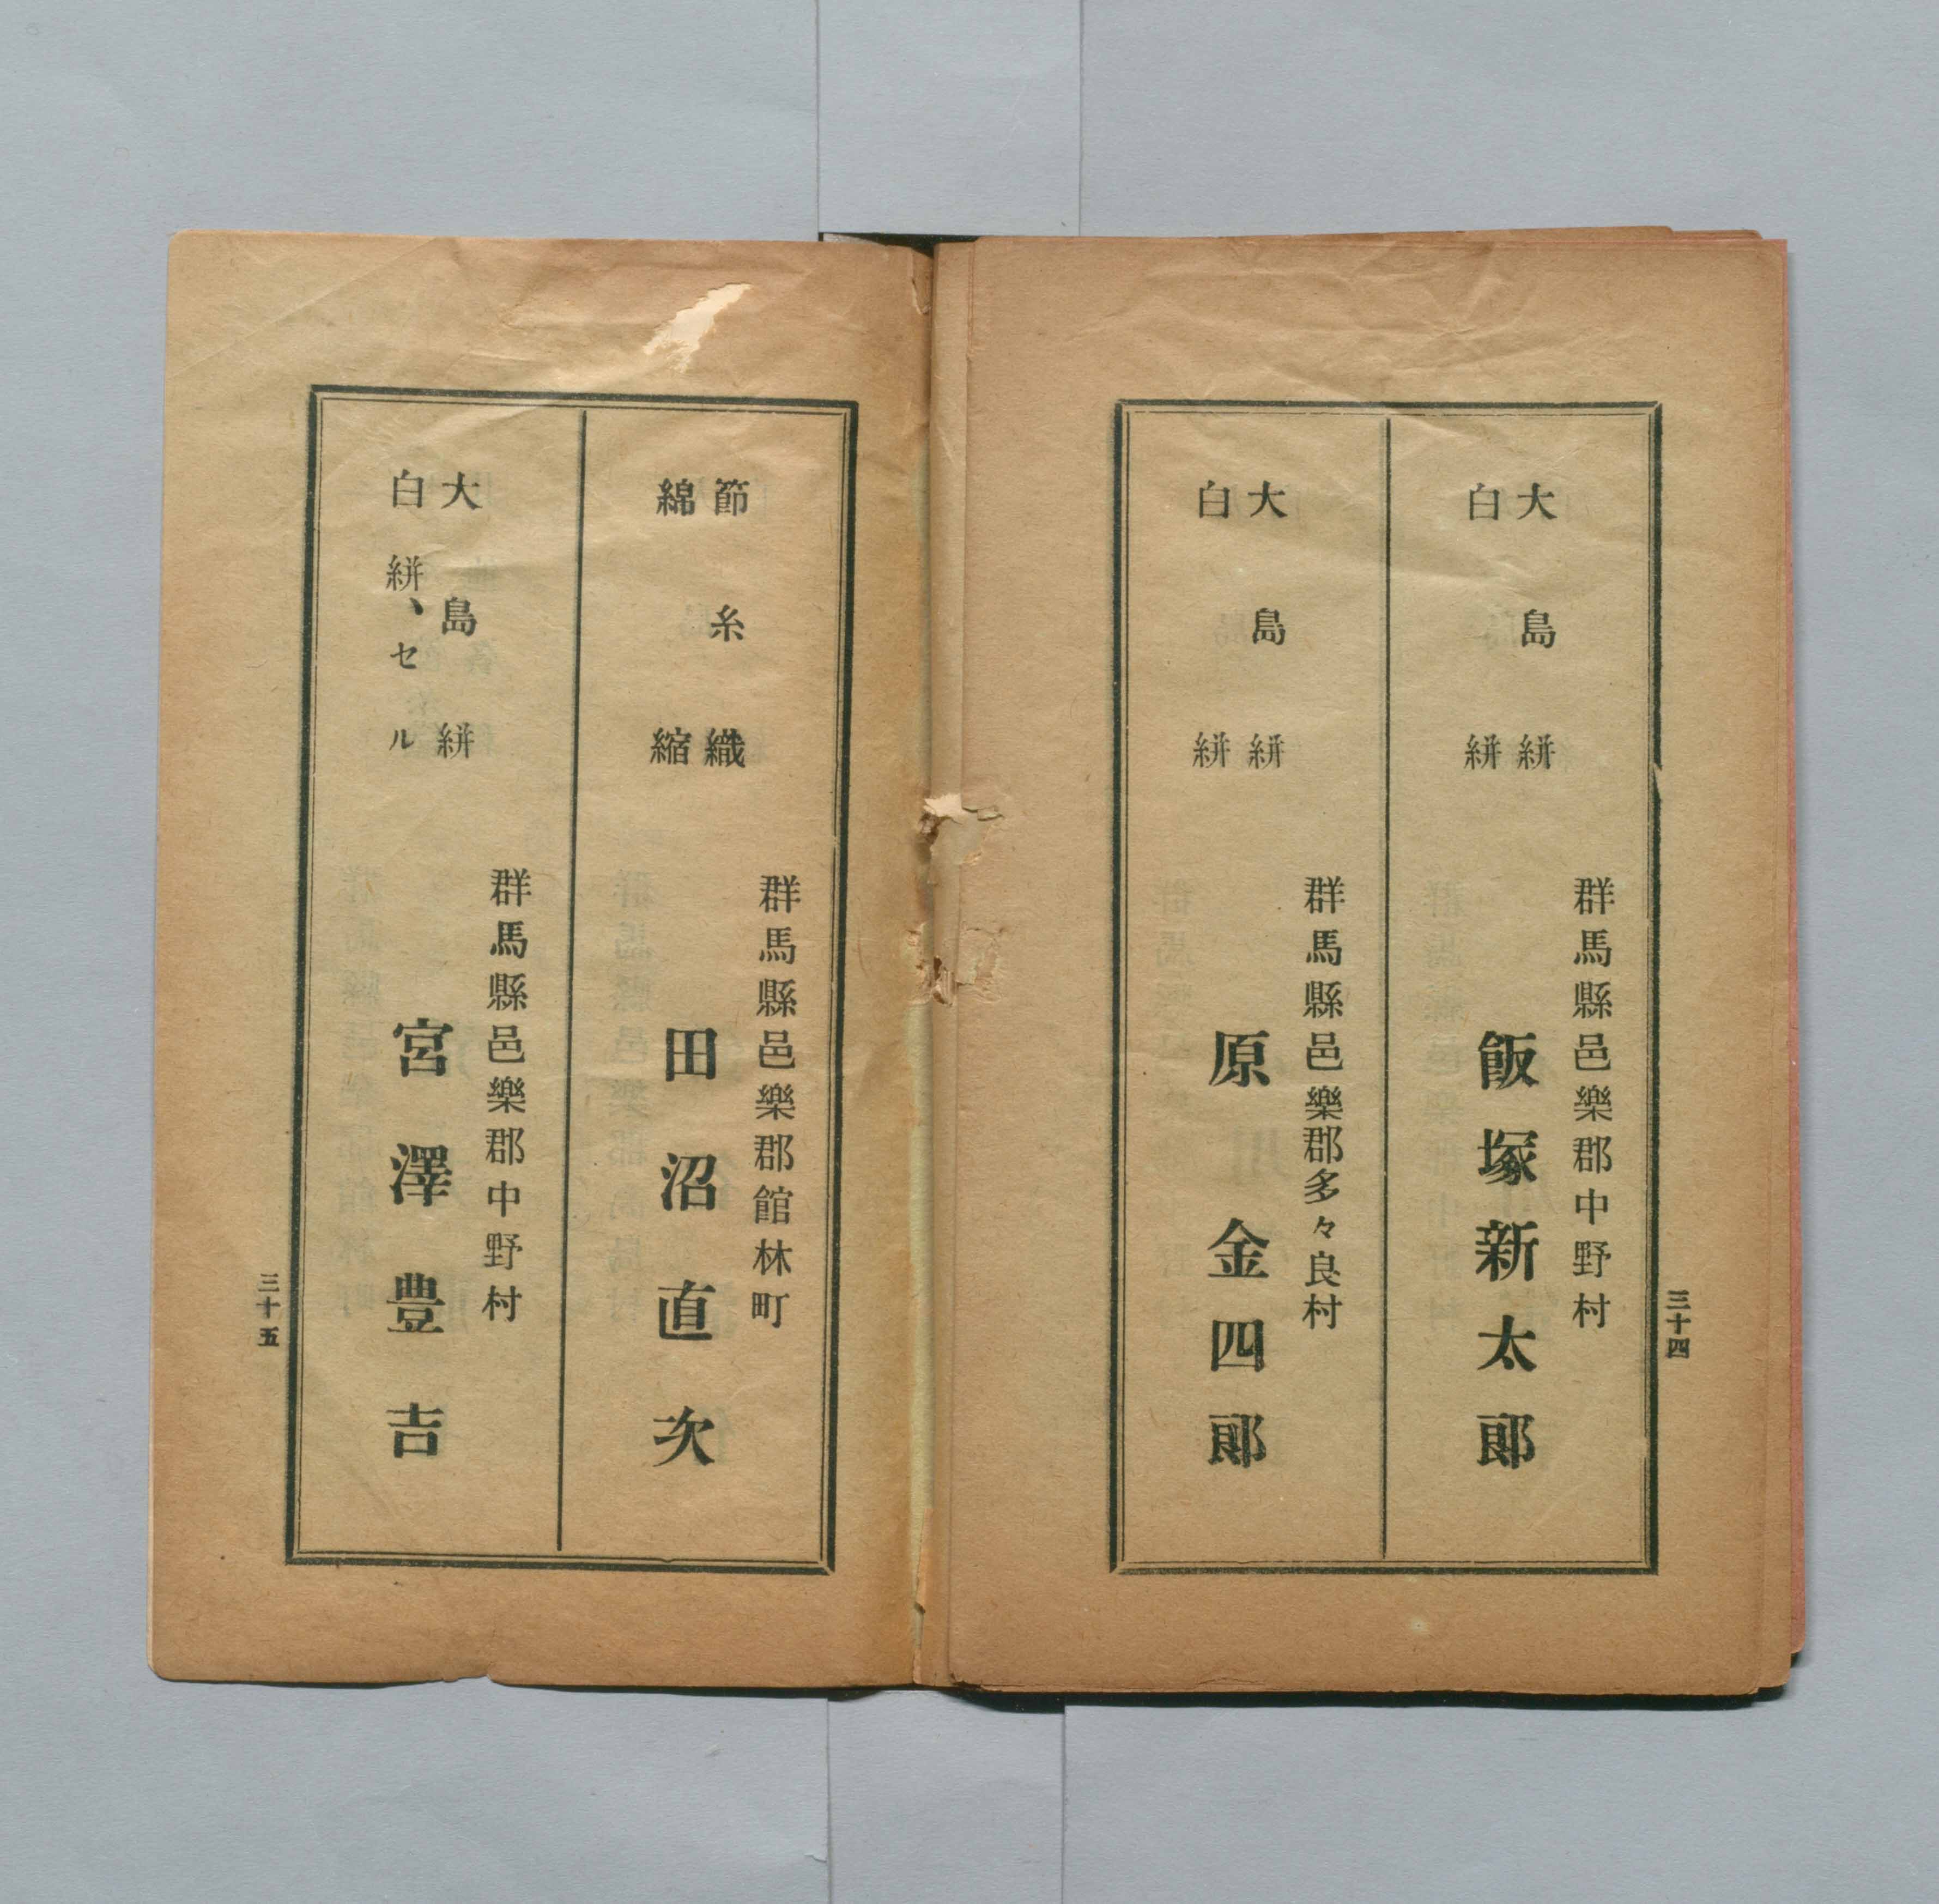 三十四
大島絣
白絣
群馬縣邑樂郡中野村
飯塚新太郎
大島絣
白絣
群馬縣邑樂郡多々良村
原金四郎
節糸織
綿縮
群馬縣邑樂郡館林町
田沼直次
大島絣
白絣、セル
群馬縣邑樂郡中野村
宮澤豊吉
三十五